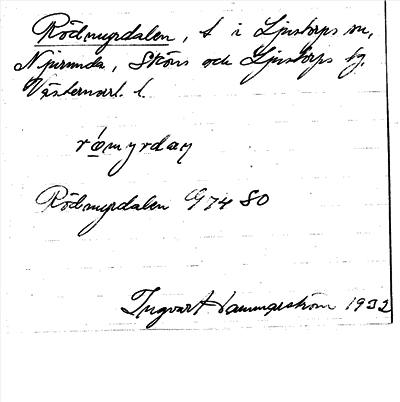 Rödmyrdalen, t i Ljustorps sn,
Njurunda, Sköns och Ljustorps tg.
Västernorrl. l.
rómyrdaɳ
Rödmyrdalen G 74 80
Ingvart Hammarström 1932